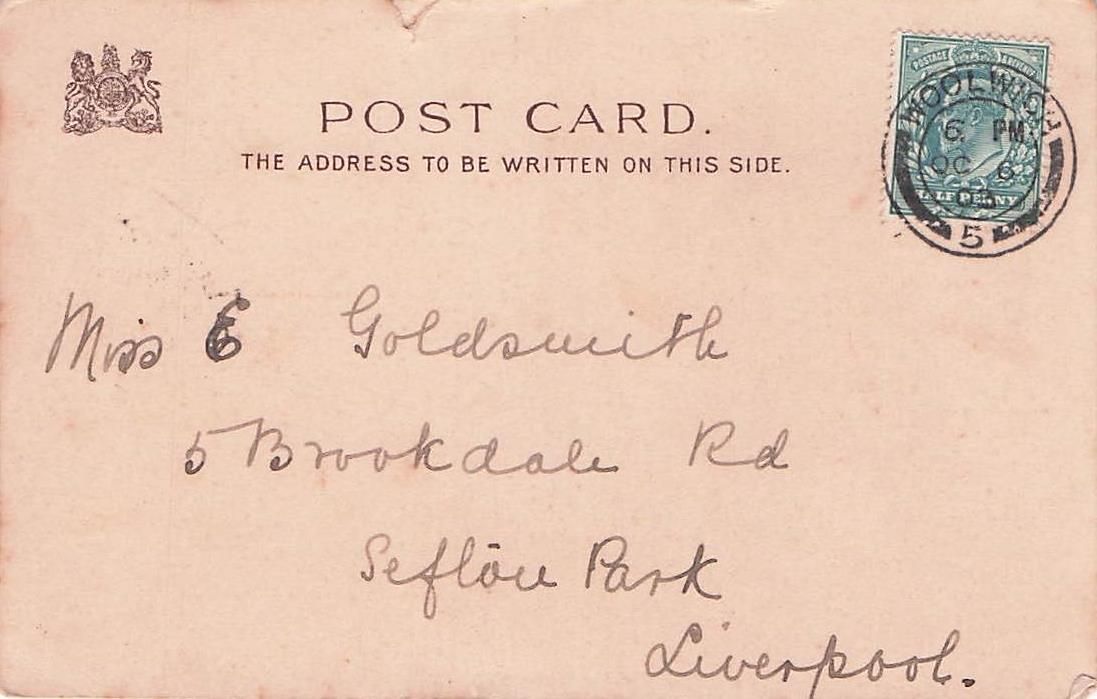 POST CARD.
THE ADDRESS TO BE WRITTEN ON THIS SIDE.
POSTAGE & REVENUE
HALF PENNY
WOOLWICH
6 PM
OC 6
03
5
Miss E Goldsmith
5 Brookdale Rd
Sefton Park
Liverpool.